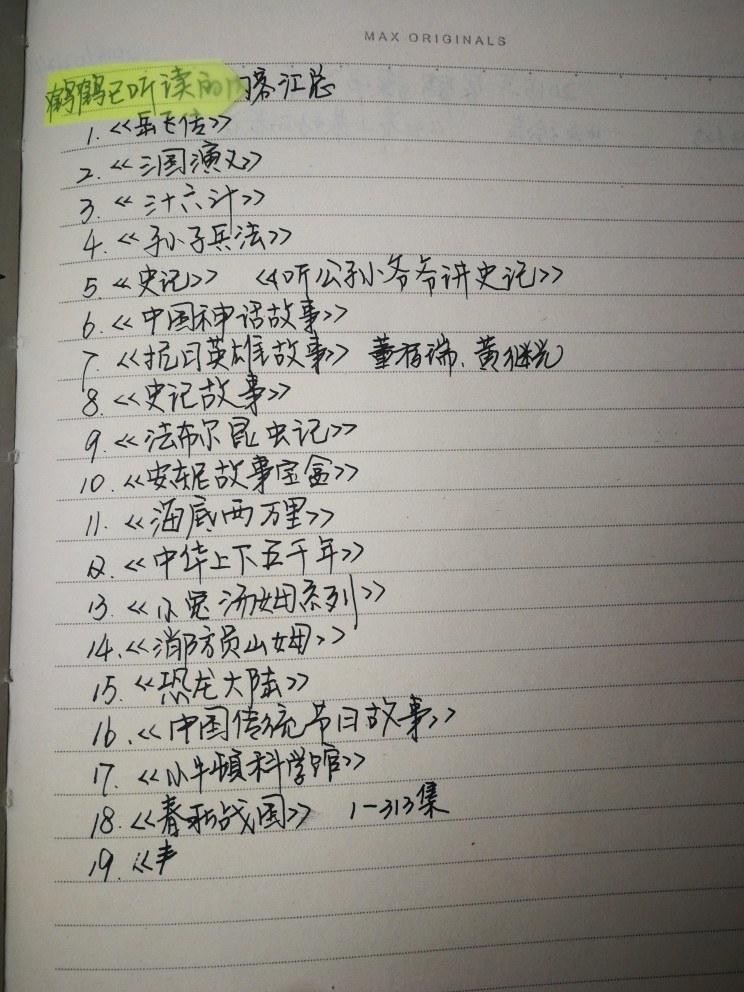 MAX ORIGINALS
鹤鹤已听读的内容汇总
1. <<岳飞传>>
2. <<三国演义>>
3. <<三十六计>>
4. <<孙子兵法>>
5. <<史记>> <<听公孙爷爷讲史记>>
6. <<中国神话故事>>
7. <<抗日英雄故事>> 董存瑞、黄继光
8. <<史记故事>>
9. <<法布尔昆虫记>>
10. <<安东尼故事宝盒>>
11. <<海底两万里>>
12. <<中华上下五千年>>
13. <<小兔汤姆系列>>
14. <<消防员山姆>>
15. <<恐龙大陆>>
16. <<中国传统节日故事>>
17. <<小牛顿科学馆>>
18. <<春秋战国>> 1-313集
19. <<丰